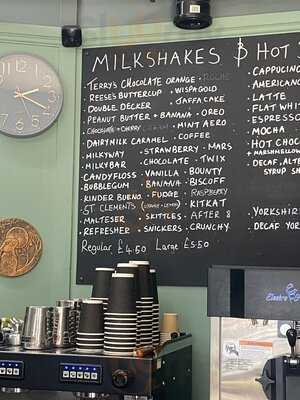 MILKSHAKES
TERRY'S CHOCOLATE ORANGE · ROLOS
REESES BUTTERCUP · WISPA GOLD
DOUBLE DECKER · JAFFA CAKE
PEANUT BUTTER + BANANA · OREO
CHOCOLATE + CHERRY · MINT AERO
DAIRYMILK CARAMEL · COFFEE
MILKYWAY · STRAWBERRY · MARS
MILKYBAR · CHOCOLATE · TWIX
CANDYFLOSS · VANILLA · BOUNTY
BUBBLEGUM · BANANA · BISCOFF
KINDER BUENO · FUDGE · RASPBERRY
ST CLEMENTS (ORANGE + LEMON) · KITKAT
MALTESER · SKITTLES · AFTER 8
REFRESHER · SNICKERS · CRUNCHY
Regular £4.50 Large £5.50
HOT
CAPPUCINO
AMERICANO
LATTE
FLAT WHIT
ESPRESSO
MOCHA
HOT CHOC
+ MARSHMELLOW
DECAF, ALTE
SYRUP SH
YORKSHIR
DECAF YOR
12
1
2
3
4
5
6
7
8
9
10
11
Electro